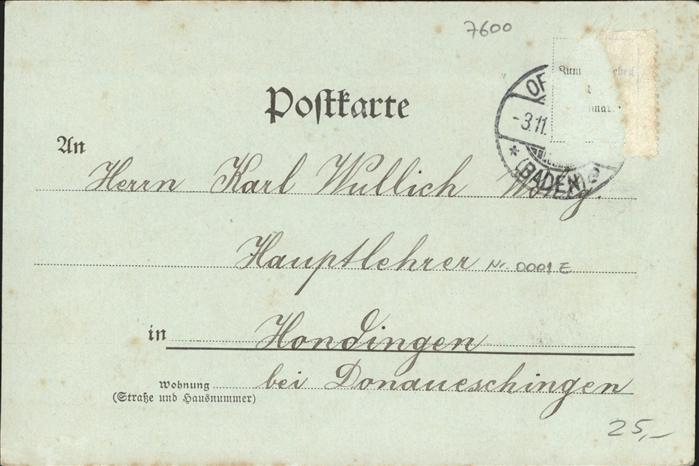 7600
Zum
OF
-3.11.
Postkarte
An
* (BADEN) 2
Herrn Karl Wullich
Hauptlehrer Nr. 0001 E
in Hondingen
Wohnung bei Donaueschingen
(Straße und Hausnummer)
25,-